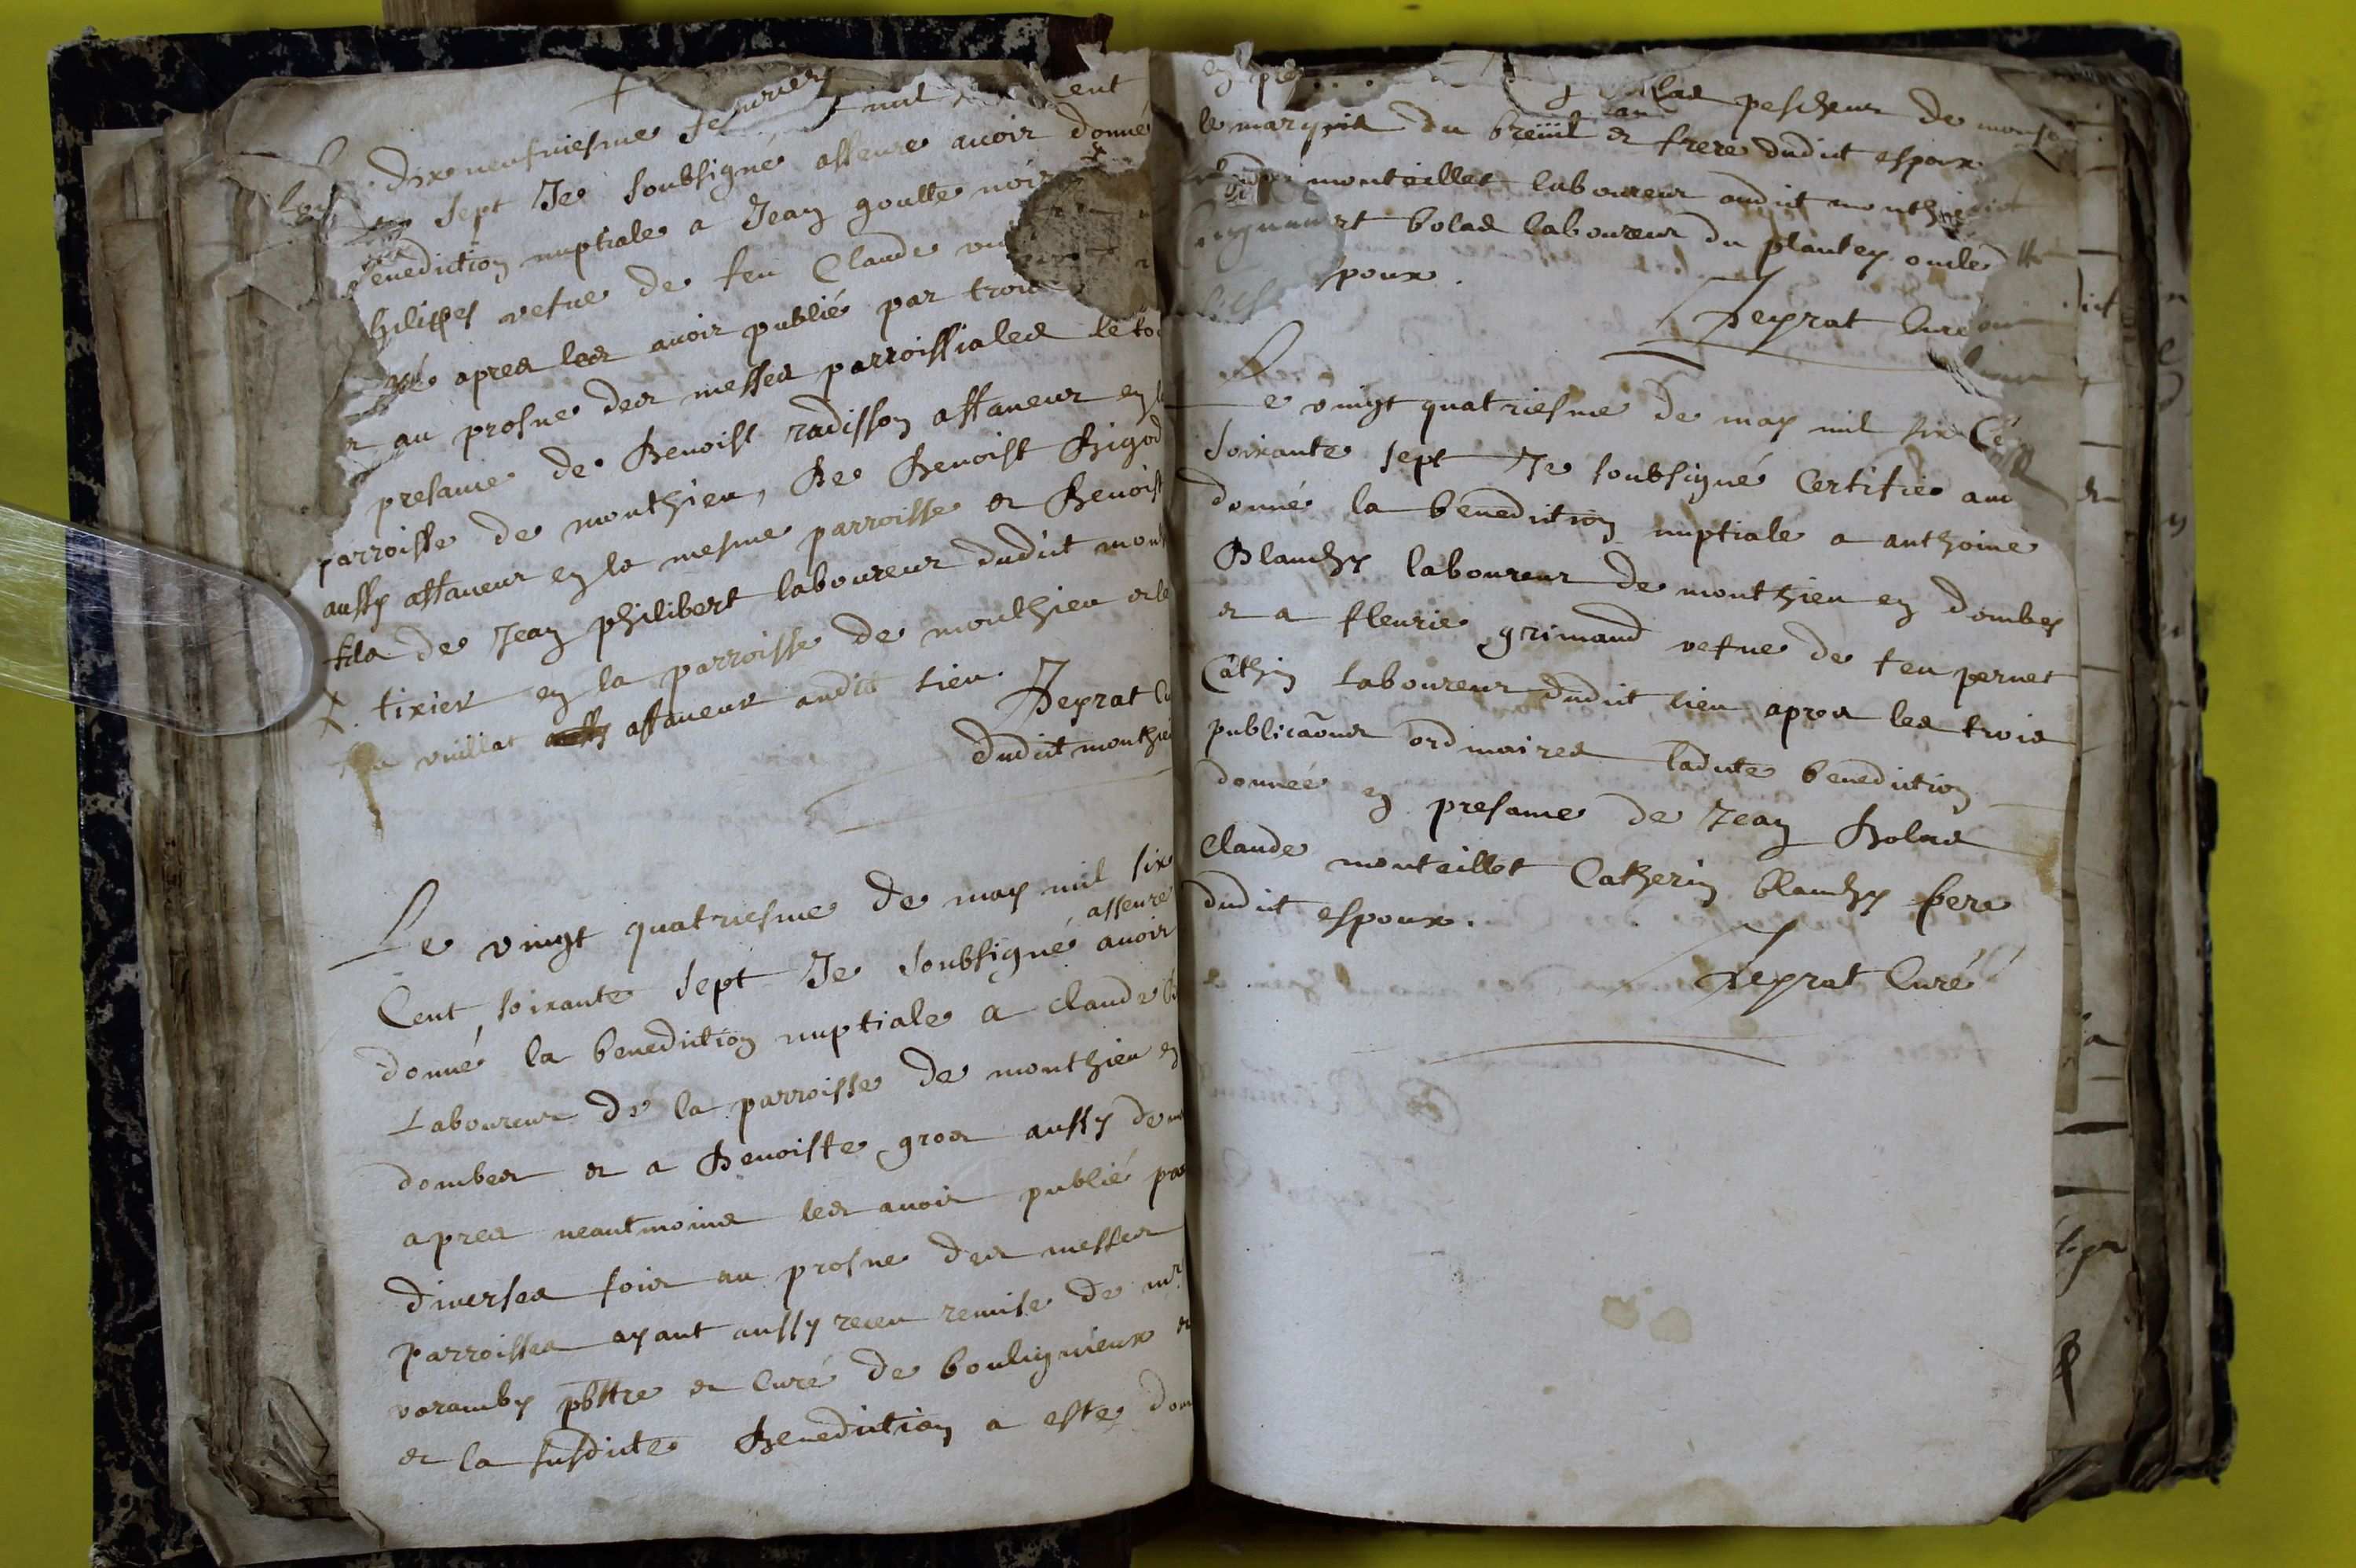 dixneufuiesme feburier mil ent
sept Je soubsigné asseure auoir donné
benediction nuptiale a Jean goutte noir
philippes vefue de feu Claude
apres les auoir publié par trois
au prosne des messes parroissiales le to
presance de Benoist radisson affaneur en
parroisse de monthieu, De Benoist Bigod
aussy affaneur en la mesme parroisse et Benoist
fils de Jean philibert laboureur dudict mont
tixier en la parroisse de monthieu et le
vuillat affaneur audit lieu.
Deyrat Cu
dudict monthieu
Le vingt quatriesme de may mil six
Cent soixante sept Je soubsigné asseure auoir
donné la benediction nuptiale a claude B
Laboureur de la parroisse de monthieu en
dombes et a Benoiste gros aussy de
apres neantmoins les auoir publié par
diuerses fois au prosne des messes
parroisses ayant aussy receu remise de mr
varamby pbstre et Curé de boulignieux et
et la susdicte Benediction a este don
las pescheur de
le marquis du breüil et frere dudict espoux
monteillet laboureur audict
bolas laboureur du plantey oncle
poux.
Deyrat Curé
Le vingt quatriesme de may mil six Ce
soixante sept Je soubsigné Certifie au
donné la benediction nuptiale a anthoine
Blanchy laboureur de monthieu en dombes
et a fleurie grimaud vefue de feu pernet
Cathin Laboureur dudict lieu apres les trois
publicaõns ordinaires Ladicte benediction
donnée en presance de Jean Bolas
Claude monteillet Catherin blanchy frere
dudict espoux.
Deyrat Curé